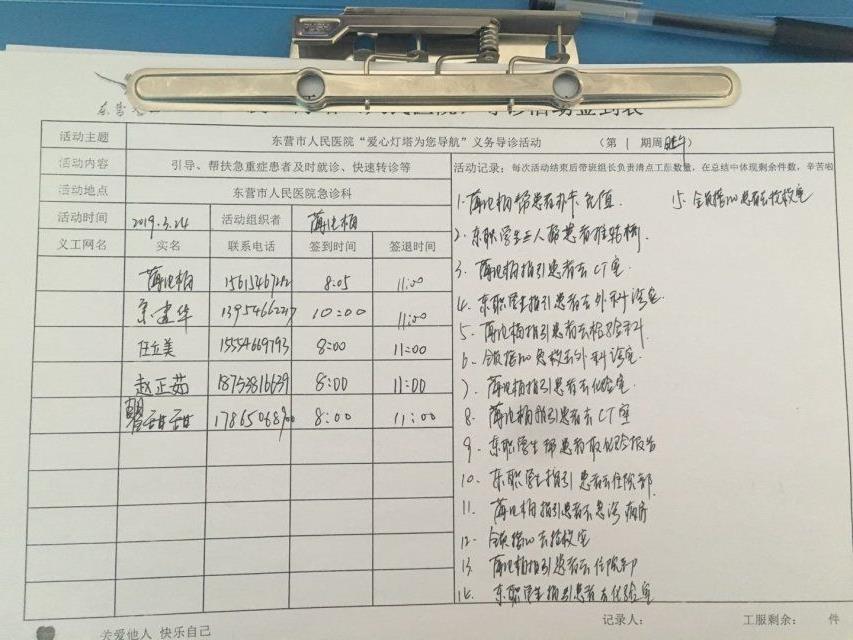 导诊活动签到表
活动主题 东营市人民医院“爱心灯塔为您导航”义务导诊活动 （第1期周
活动内容 引导、帮扶急重症患者及时就诊、快速转诊等
活动记录：每次活动结束后带班组长负责清点工服数量，在总结中体现剩余件数，辛苦啦
活动地点 东营市人民医院急诊科
活动时间 2019.3.24 活动组织者
义工网名 实名 联系电话 签到时间 签退时间
8:05 11:00
13954662217 10:00 11:00
任立美 15554669793 8:00 11:00
赵正茹 18753816639 8:00 11:00
甜甜 8:00 11:00
1. 帮患者办卡充值.
2. 东职学生三人帮患者推转椅.
3. 指引患者去CT室
4. 东职学生指引患者去外科诊室
5. 指引患者去检验科
6. 外科诊室.
7. 指引患者去化验室.
8. 指引患者去CT室
9. 东职学生帮患者取化验报告
10. 东职学生指引患者去住院部.
11. 指引患者去急诊病房
12. 去抢救室
13. 指引患者去住院部
14. 东职学生指引患者去化验室
15. 患者去抢救室
记录人： 工服剩余： 件
关爱他人 快乐自己